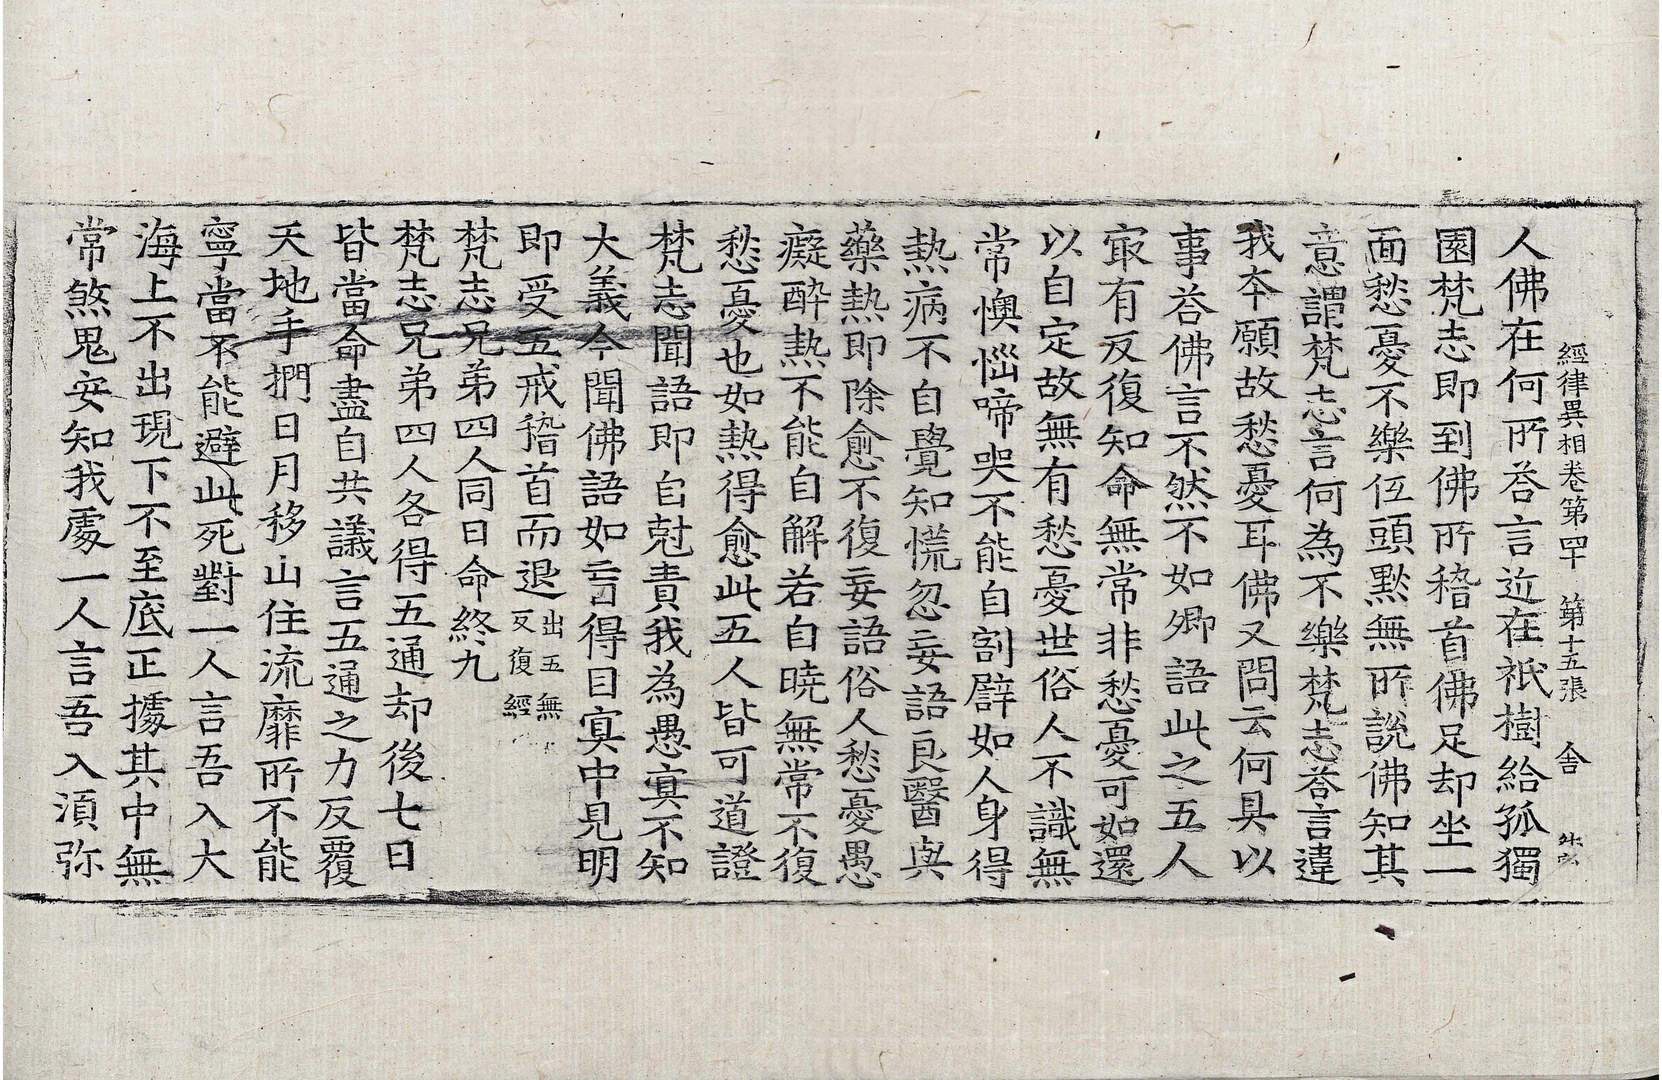 經律異相卷第四十 第十五張 舍
人佛在何所荅言近在祇樹給孤獨
園梵志即到佛所稽首佛足却坐一
面愁憂不樂伍頭默無所說佛知其
意謂梵志言何為不樂梵志荅言違
我本願故愁憂耳佛又問云何具以
事荅佛言不然不如卿語此之五人
㝡有反復知命無常非愁憂可如還
以自定故無有愁憂世俗人不識無
常懊惱啼哭不能自割辟如人身得
熱病不自覺知慌忽妄語良醫與
藥熱即除愈不復妄語俗人愁憂愚
癡酔熱不能自解若自曉無常不復
愁憂也如熱得愈此五人皆可道證
梵志聞語即自尅責我為愚㝠不知
大義今聞佛語如盲得目㝠中見明
即受五戒稽首而退出五無反復經
梵志兄弟四人同日命終九
梵志兄弟四人各得五通却後七日
皆當命盡自共議言五通之力反覆
天地手捫日月移山住流靡所不能
寧當不能避此死對一人言吾入大
海上不出現下不至底正據其中無
常煞鬼安知我處一人言吾入湏弥